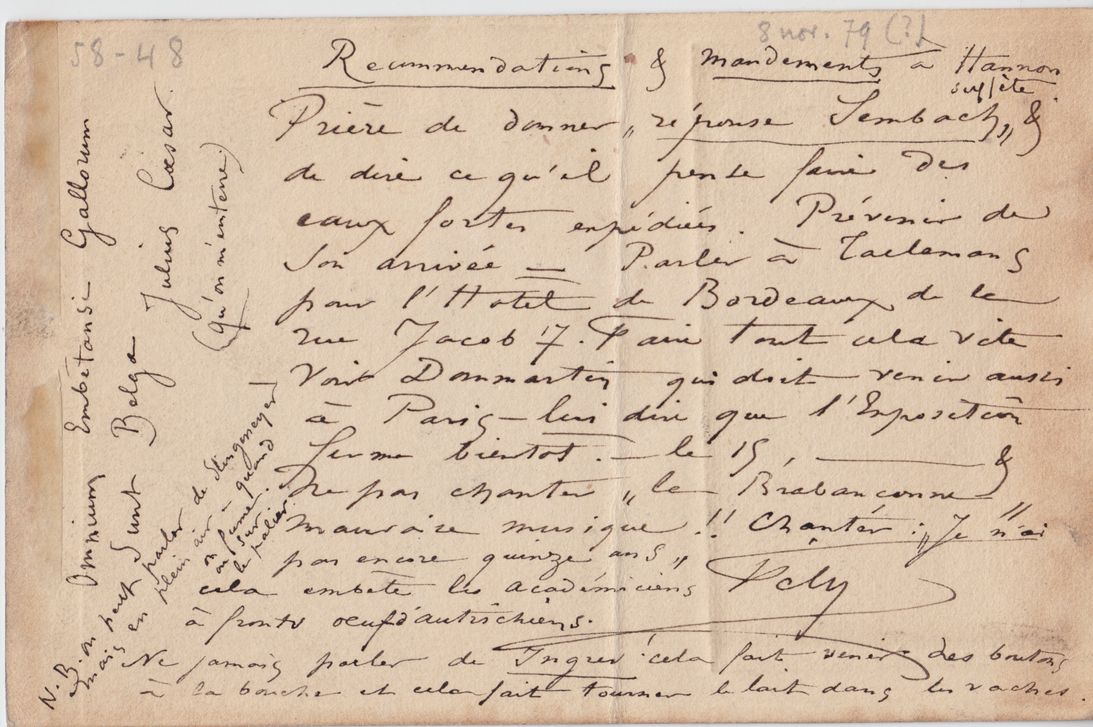 58-48
8 nov. 79 (?)
Recommendations & mandements à Hannon
suffète.
Prière de donner „réponse Sembach„ &
de dire ce qu'il pense faire des
eaux fortes expédiées. Prévenir de
son arrivée = Parler à Taelemans
pour l'Hotel de Bordeaux de la
rue Jacob 17. Faire tout cela vite
Voir Dommartin qui doit venir aussi
à Paris – lui dire que l'Exposition
ferme bientot. – le 15, &
Ne pas chanter „la Brabançonne„
mauvaise musique !! Chanter : „Je n'ai
pas encore quinze ans„
cela embète les académiciens
à fronts d'autrichiens.
Ne jamais parler de Ingres! cela fait venir des boutons
à la bouche et cela fait tourner le lait dans les vaches.
Omnium Embêtansi Gallorum
Sunt Belga Julius Cæsar.
(qu'on m'enterre)
N.B. on peut parler de
mais en plein air – quand
on fume.
sur
le palier.